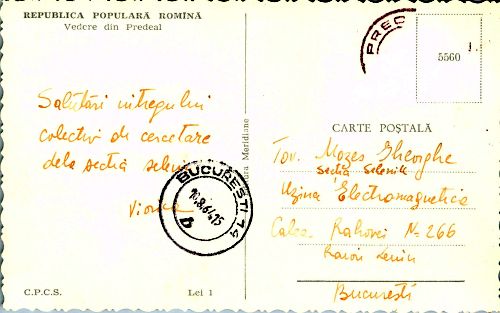 REPUBLICA POPULARĂ ROMÎNĂ
Vedere din Predeal
Salutări întregului
colectiv de cercetare
dela secția
Viorica
BUCUREȘTI 14
Meridiane
C.P.C.S.
Lei 1
PRED
5560
CARTE POȘTALĂ
Tov. Mozes Gheorghe
Secția Seleniu
Uzina Electromagnetica
Calea Rahovei No 266
Raion Lenin
București